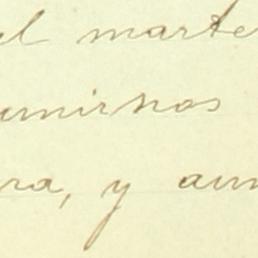 el marte
unirnos
ra, y aun